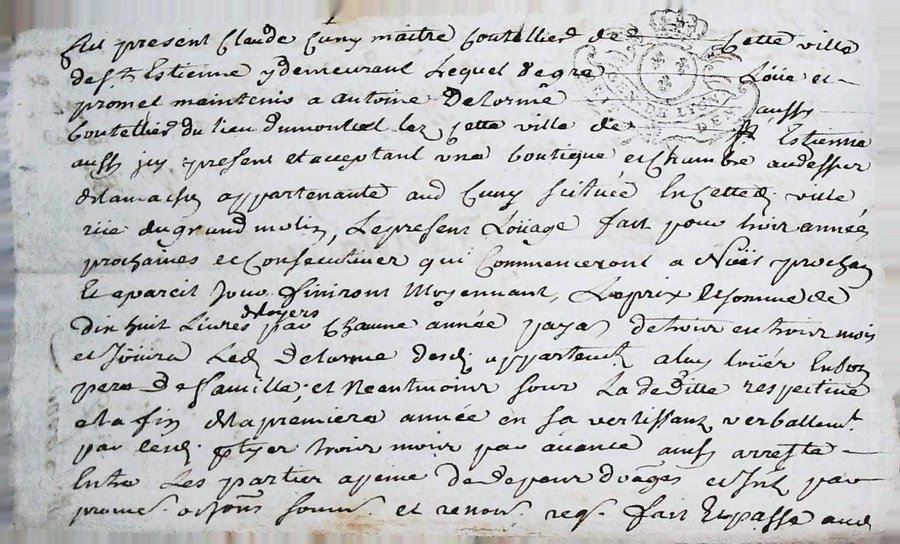 Fut present Claude Cuny maitre Coutellier de cette ville
de St. Estienne y demeurant Lequel de gre Loüe et
promet maintenir a Antoine Delorme aussy
Coutellier du lieu Dumontel lez cette ville de St. Estienne
aussy icy present et acceptant une boutique et Chambre au dessus
appartenante aud Cuny scituée En cetted. ville
rüe du grand molin, Le present Loüage fait pour trois années
prochaines et Consecutives qui Commenceront a Noël prochain
Et a pareil Jour finiront Moyennant, Le prix et somme de
Dix huit Livres de loyers par Chacune année payab. de trois en trois mois
et Joüira Led. Delorme desd. appartemts. a luy loüés En bon
pere De famille, et Neantmoins sous La deditte respective
a la fin de la premiere année en s'avertissant verballemt.
par lesd. trois mois par avance ainsy arresté
Entre Les parties a peine de depens domages et Int. par
promes. sermt. soum. et renon. req. fait Et passé aud